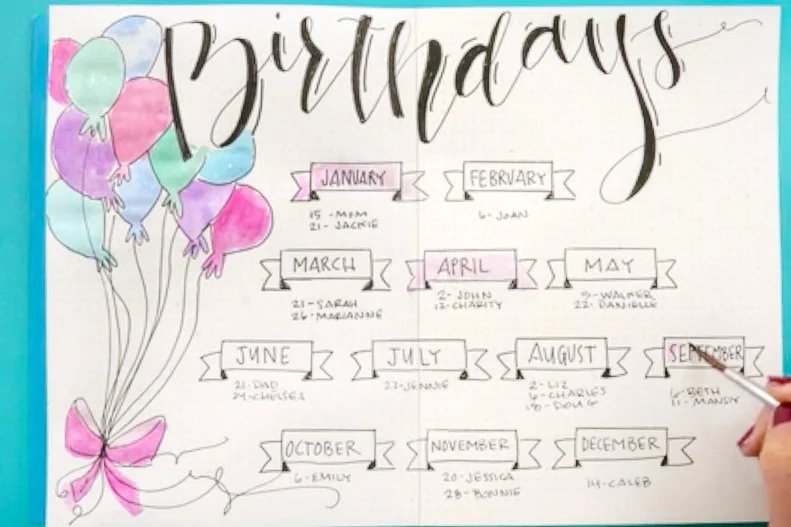 Birthdays
JANUARY
15 - MOM
21 - JACKIE
FEBRUARY
6 - JOAN
MARCH
21 - SARAH
26 - MARIANNE
APRIL
2 - JOHN
12 - CHARITY
MAY
9 - WALKER
22 - DANIELLE
JUNE
21 - DAD
24 - CHELSEA
JULY
27 - JENNIE
AUGUST
2 - LIZ
6 - CHARLES
18 - DOUG
SEPTEMBER
6 - BETH
11 - MANDY
OCTOBER
6 - EMILY
NOVEMBER
20 - JESSICA
28 - BONNIE
DECEMBER
14 - CALEB